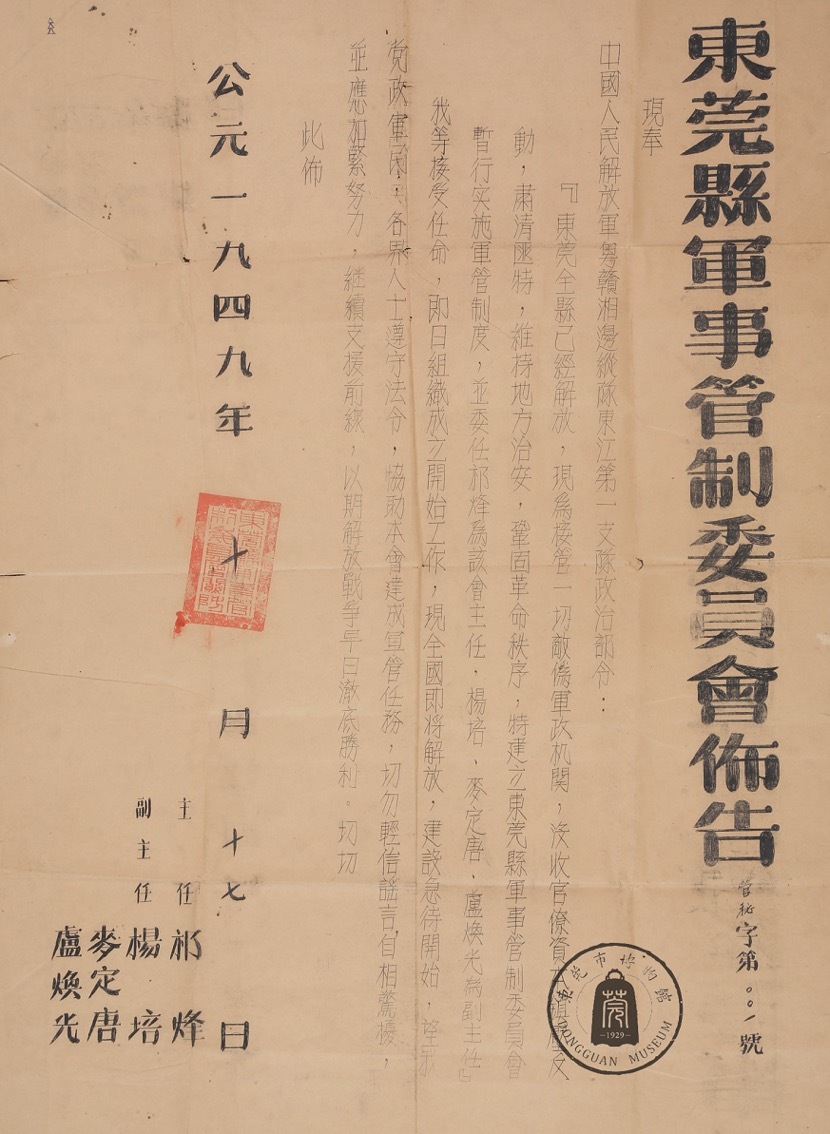 東莞縣軍事管制委員會佈告
管秘字第〇〇一號
現奉
中國人民解放軍粵贛湘邊縱隊東江第一支隊政治部令：
『東莞全縣已經解放，現為接管一切敵偽軍政机関，沒收官僚資本，鎮壓反
動，肅清匪特，維持地方治安，鞏固革命秩序，特建立東莞縣軍事管制委員會
暫行实施軍管制度，並委任祁烽為該會主任、楊培、麥定唐、盧煥光為副主任』
我等接受任命，即日組織成立開始工作，現全國即将解放，建設急待開始，望我
党政軍民，各界人士遵守法令，協助本會達成軍管任務，切勿輕信謠言，自相驚擾，
並應加緊努力，継續支援前線，以期解放戰爭早日澈底勝利。切切
此佈
公元一九四九年十月十七日
主任 祁烽
副主任 楊培
麥定唐
盧煥光
東莞市博物館
莞
1929
DONGGUAN MUSEUM